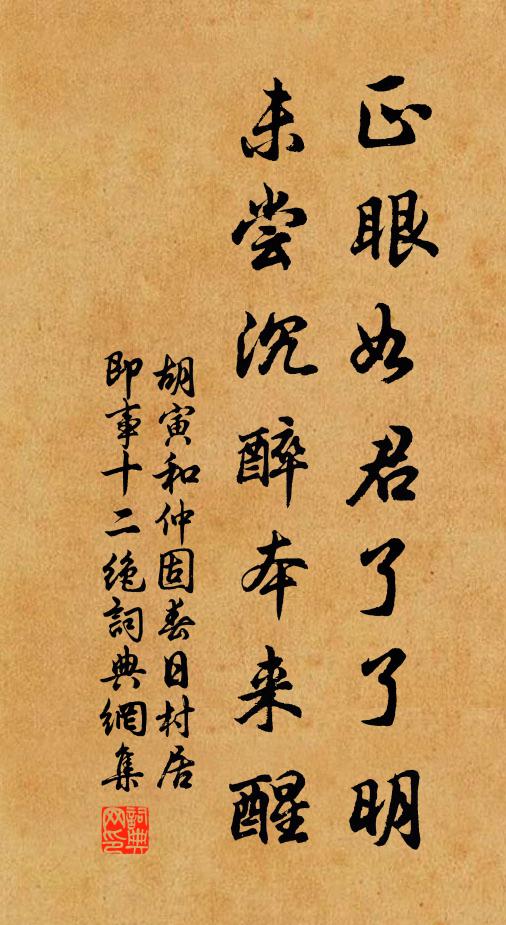 正眼如君了了明
未尝沉醉本来醒
胡寅和仲固春日村居
即事十二绝词典网集
词典
网印